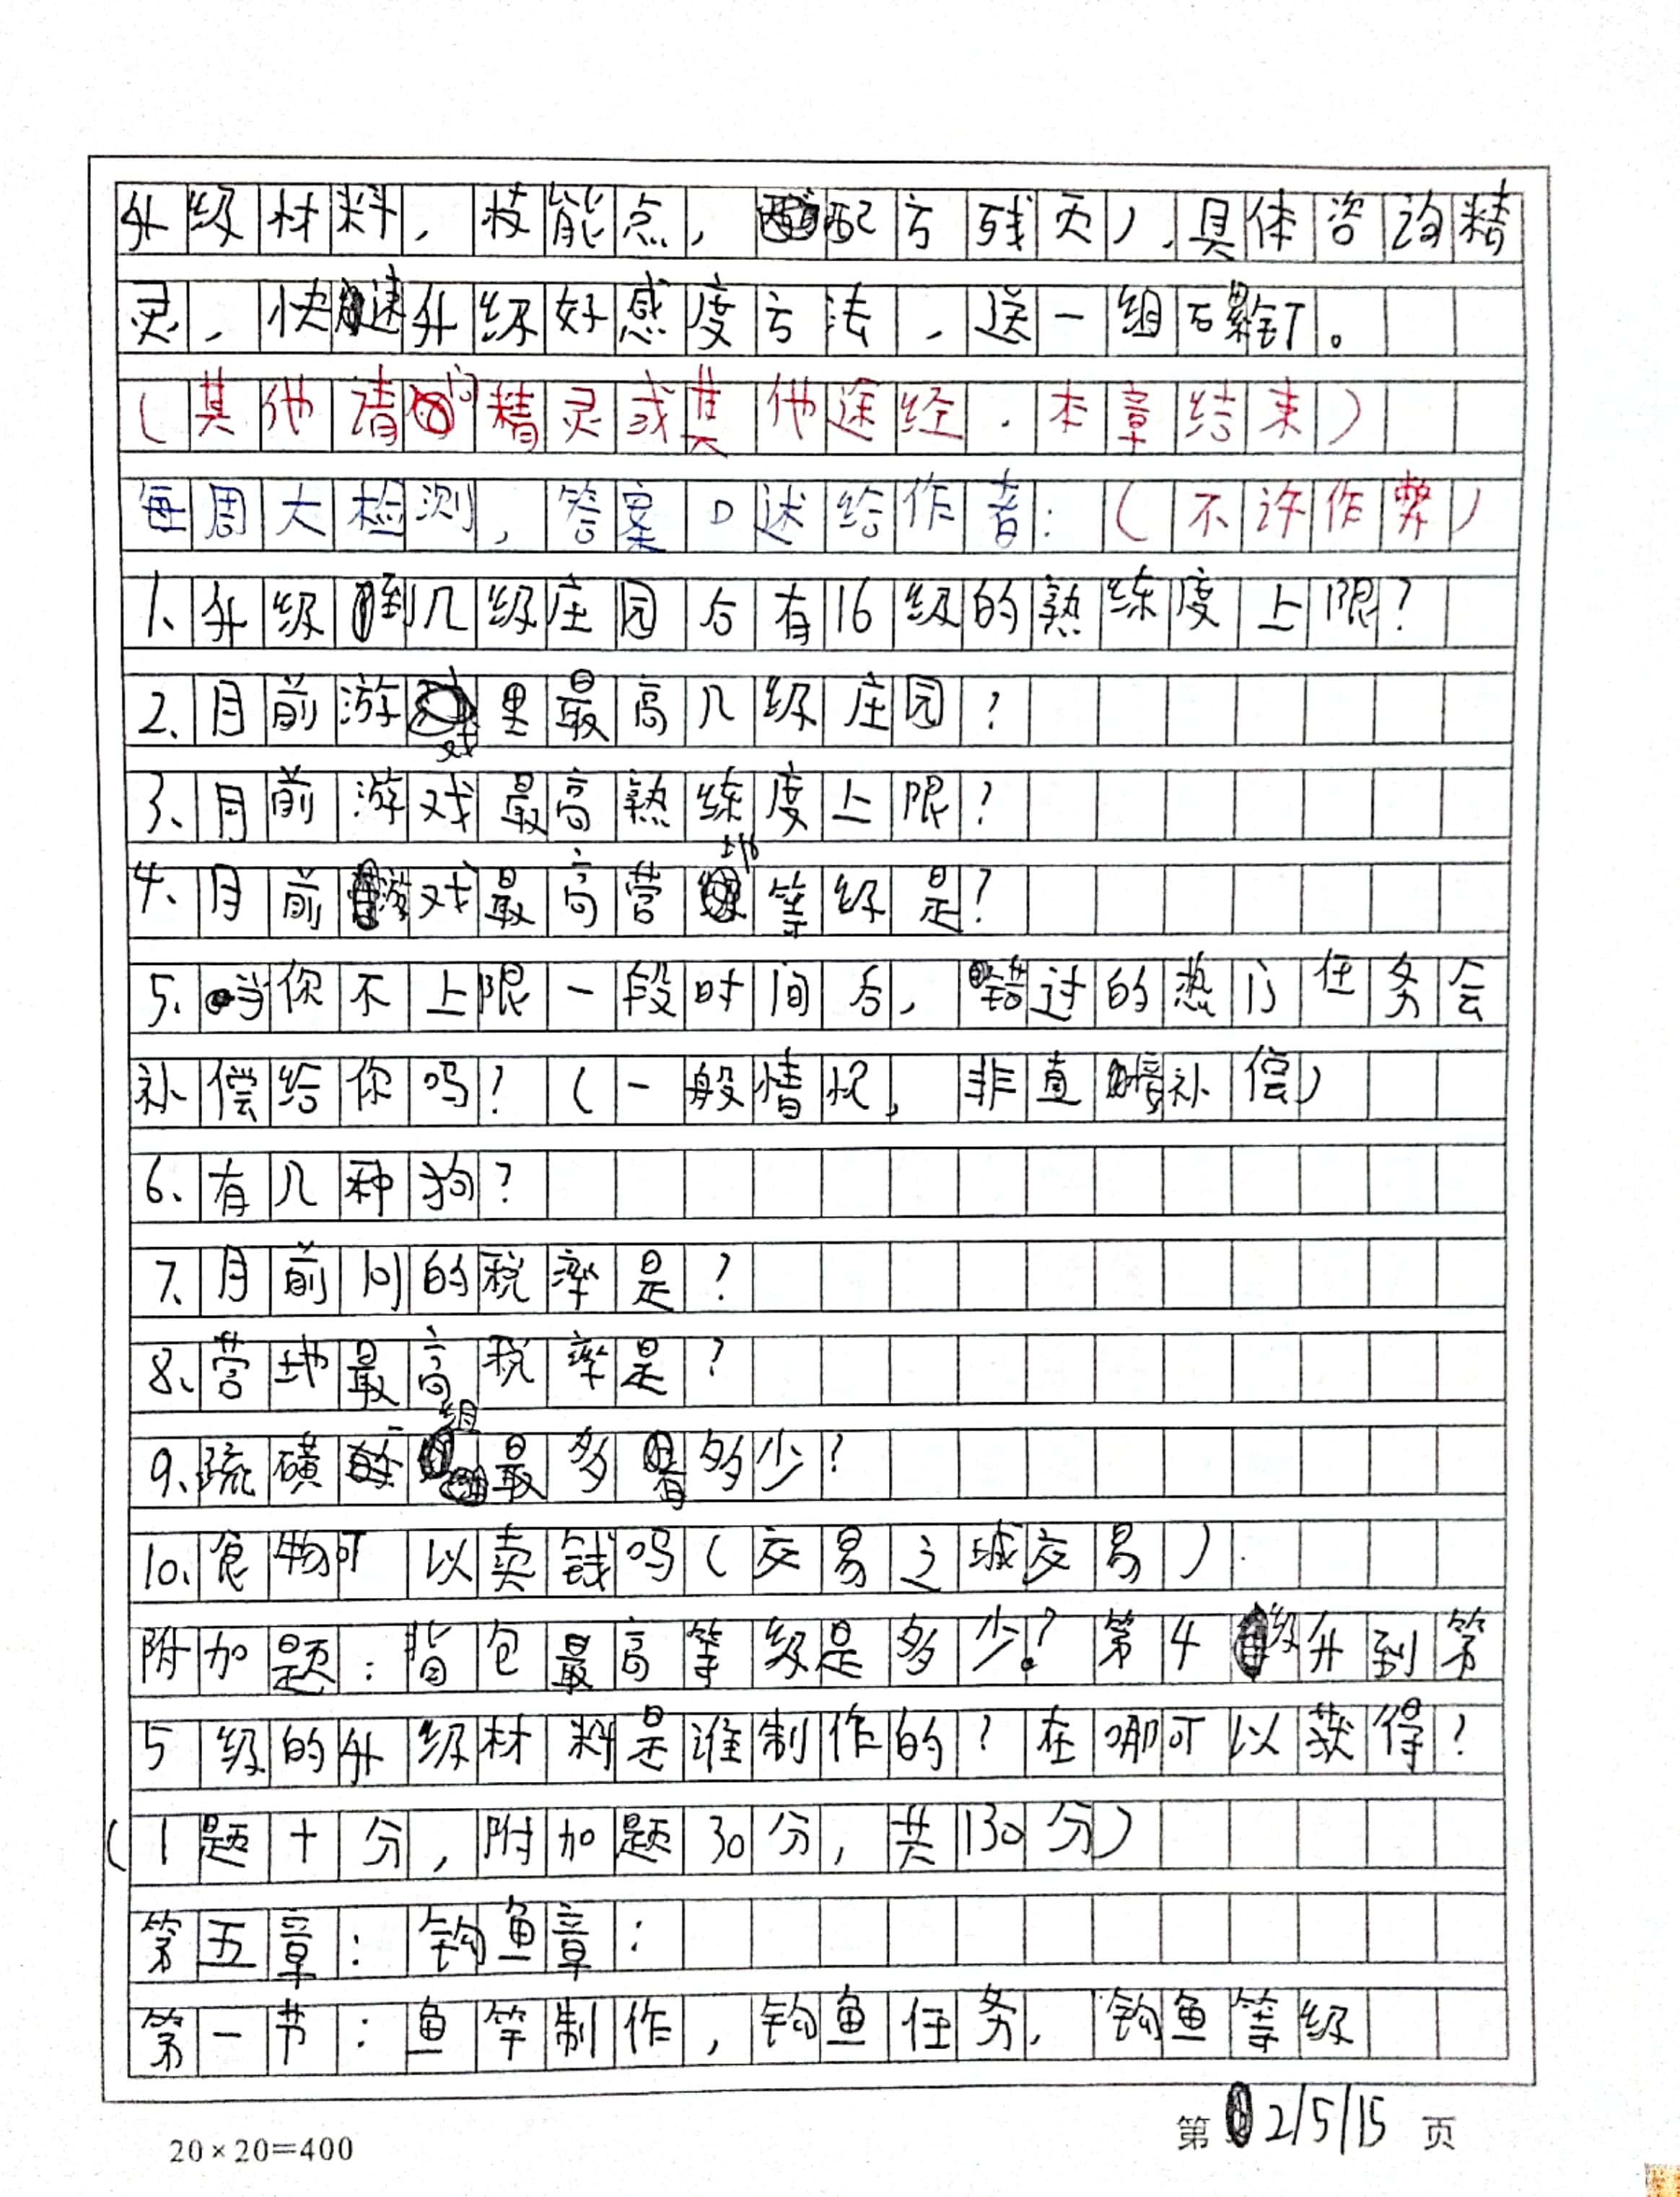 升级材料,技能点,配方残页),具体咨询精
灵,快速升级好感度方法,送一组螺钉。
(其他请问精灵或其他途经.本章结束)
每周大检测,答案口述给作者:(不许作弊)
1、升级到几级庄园后有16级的熟练度上限?
2、目前游戏里最高几级庄园?
3、目前游戏最高熟练度上限?
4、目前游戏最高营地等级是?
5、当你不上限一段时间后,错过的热门任务会
补偿给你吗?(一般情况,非直接补偿)
6、有几种狗?
7、目前间的税率是?
8、营地最高税率是?
9、硫磺一组最多有多少?
10、食物可以卖钱吗(交易之城交易).
附加题:背包最高等级是多少?第4级升到第
5级的升级材料是谁制作的?在哪可以获得?
(1题十分,附加题30分,共130分)
第五章:钓鱼章:
第一节:鱼竿制作,钓鱼任务,钓鱼等级
20×20=400
第2/5/15页